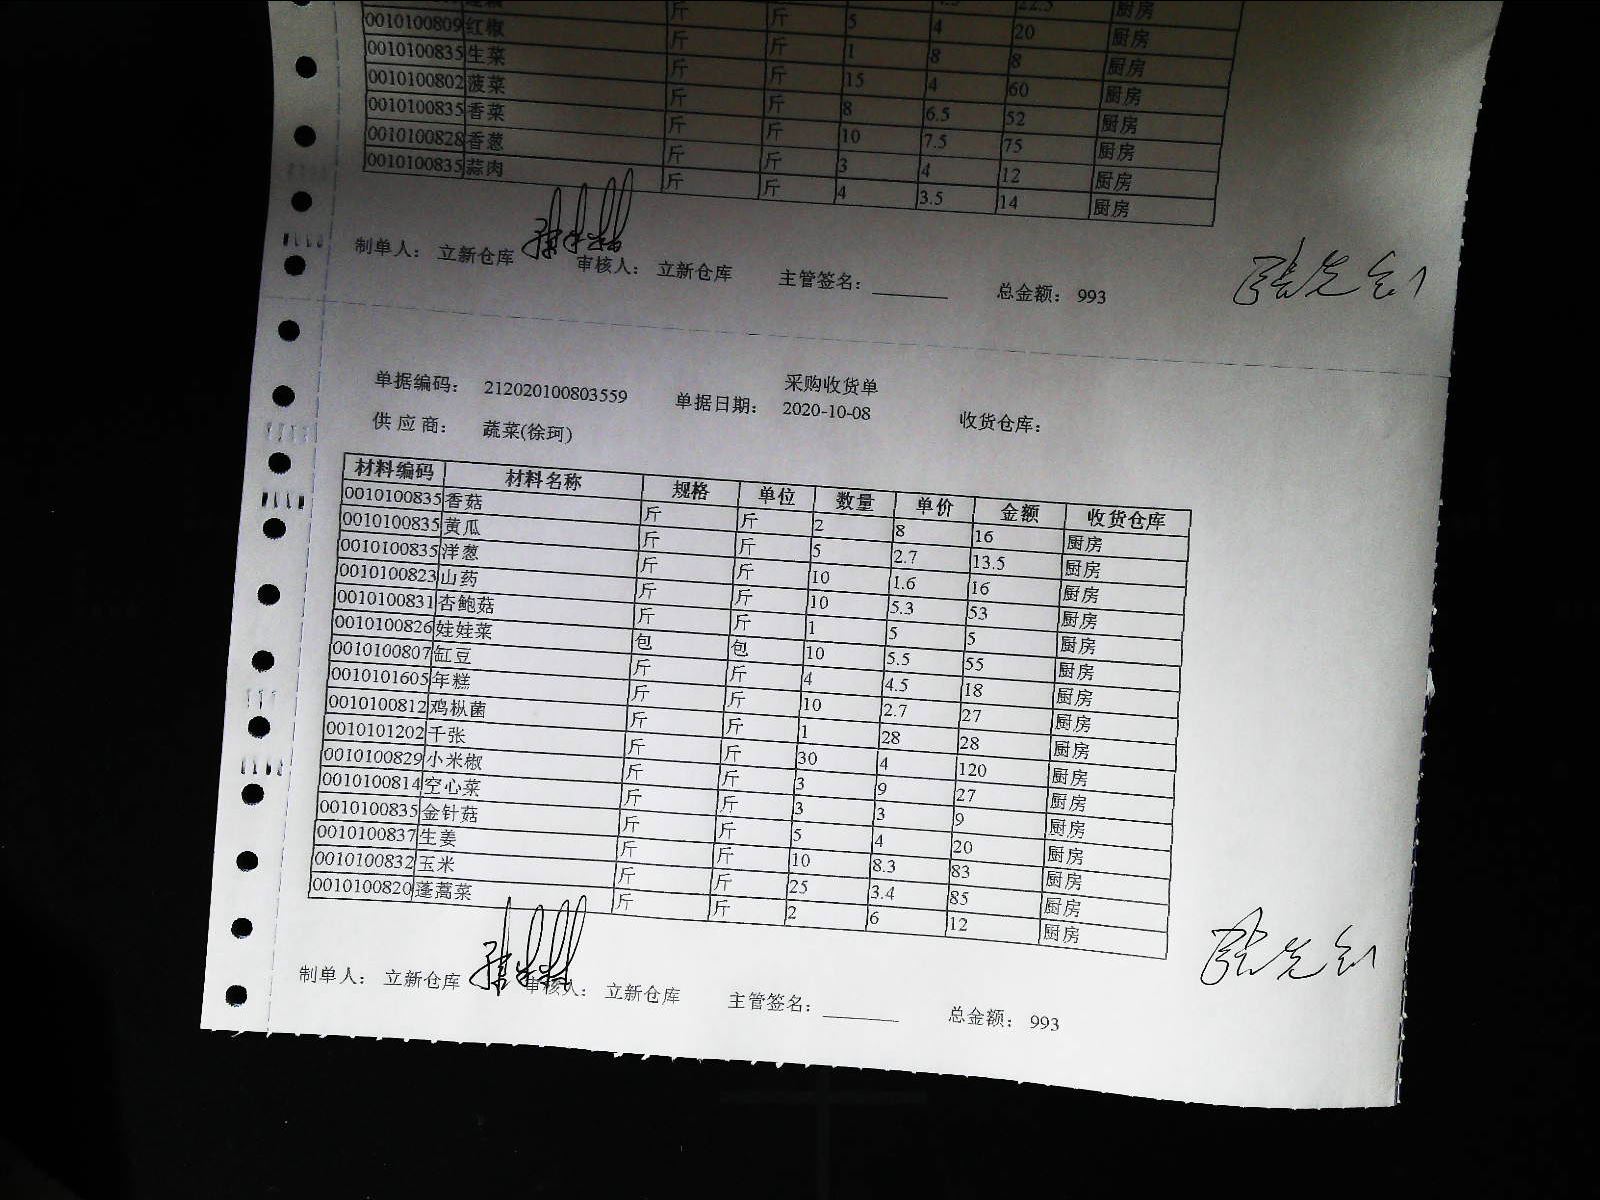 22.5 厨房
斤 斤 5 4 20 厨房
0010100809 红椒 斤 斤 1 8 8 厨房
0010100835 生菜 斤 斤 15 4 60 厨房
0010100802 菠菜 斤 斤 8 6.5 52 厨房
0010100835 香菜 斤 斤 10 7.5 75 厨房
0010100828 香葱 斤 斤 3 4 12 厨房
0010100835 蒜肉 斤 斤 4 3.5 14 厨房
制单人： 立新仓库 审核人： 立新仓库 主管签名：________ 总金额： 993
采购收货单
单据编码： 212020100803559 单据日期： 2020-10-08 收货仓库：
供 应 商： 蔬菜(徐珂)
材料编码 材料名称 规格 单位 数量 单价 金额 收货仓库
0010100835 香菇 斤 斤 2 8 16 厨房
0010100835 黄瓜 斤 斤 5 2.7 13.5 厨房
0010100835 洋葱 斤 斤 10 1.6 16 厨房
0010100823 山药 斤 斤 10 5.3 53 厨房
0010100831 杏鲍菇 斤 斤 1 5 5 厨房
0010100826 娃娃菜 包 包 10 5.5 55 厨房
0010100807 缸豆 斤 斤 4 4.5 18 厨房
0010101605 年糕 斤 斤 10 2.7 27 厨房
0010100812 鸡枞菌 斤 斤 1 28 28 厨房
0010101202 千张 斤 斤 30 4 120 厨房
0010100829 小米椒 斤 斤 3 9 27 厨房
0010100814 空心菜 斤 斤 3 3 9 厨房
0010100835 金针菇 斤 斤 5 4 20 厨房
0010100837 生姜 斤 斤 10 8.3 83 厨房
0010100832 玉米 斤 斤 25 3.4 85 厨房
0010100820 蓬蒿菜 斤 斤 2 6 12 厨房
制单人： 立新仓库 审核人： 立新仓库 主管签名：________ 总金额： 993